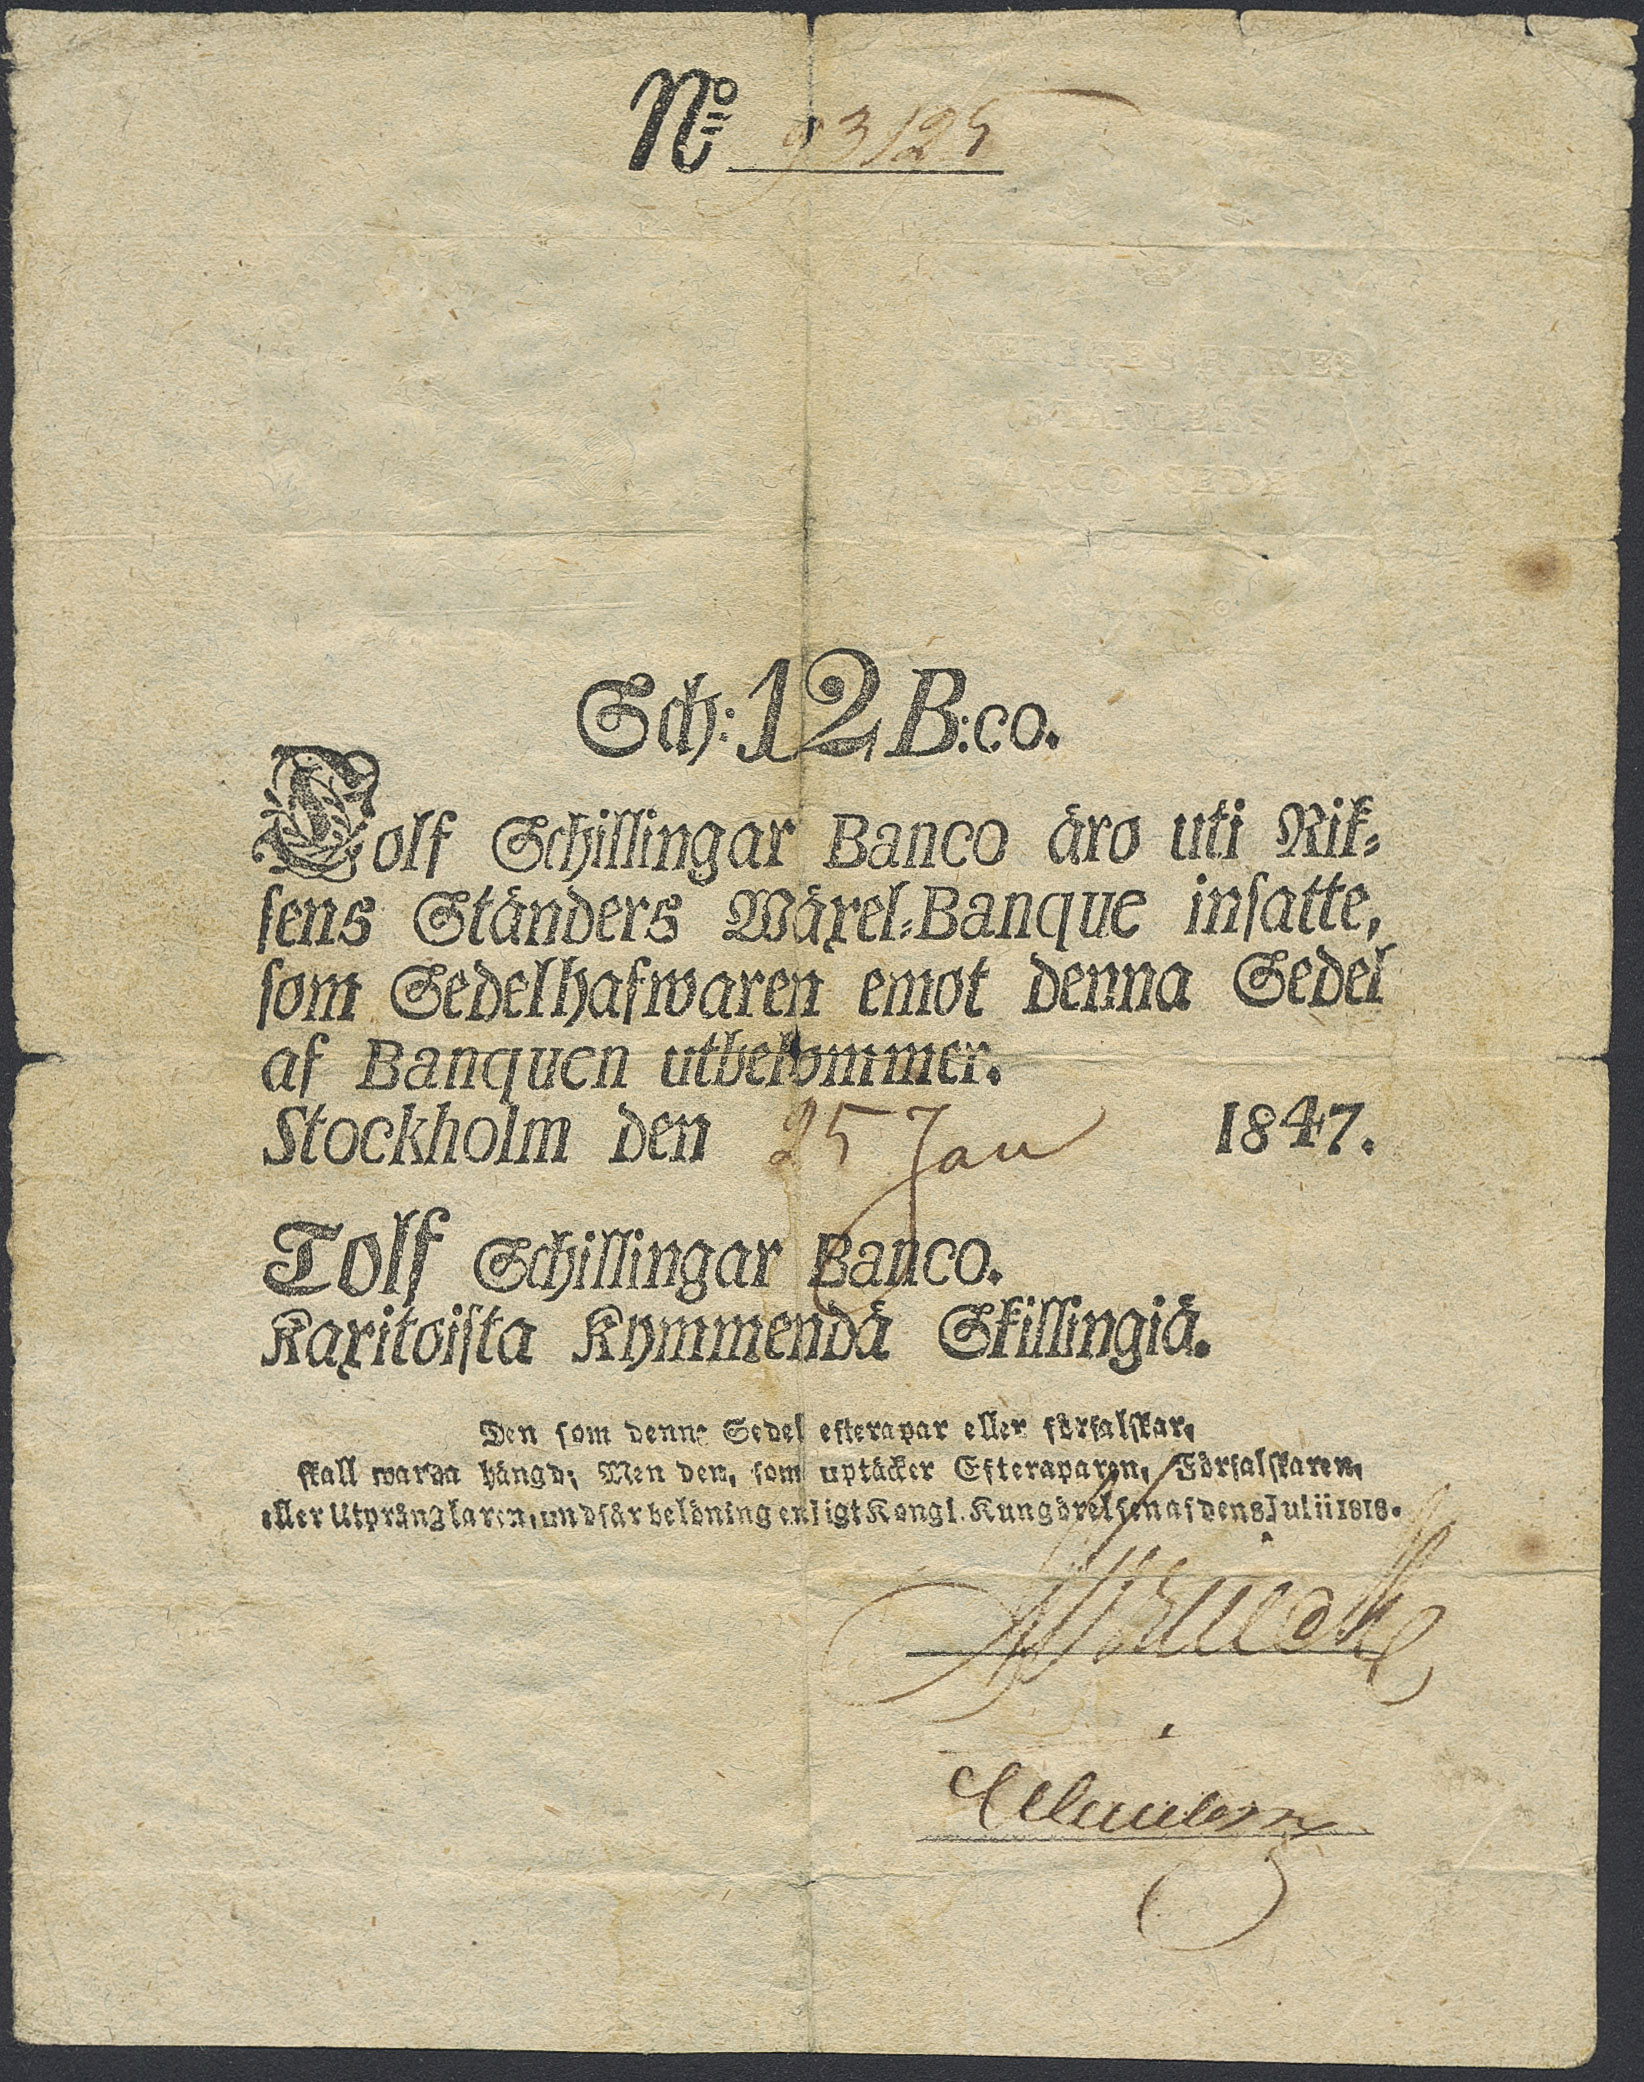 No 93125
Sch: 12 B:co.
Tolf Schillingar Banco äro uti Rik-
sens Ständers Wäxel-Banque insatte,
som Sedelhafwaren emot denna Sedel
af Banquen utbekommer.
Stockholm den 25 Jan 1847.
Tolf Schillingar Banco.
Kaxitoista Kymmendä Skillingiä.
Den som denna Sedel efterapar eller förfalskar,
skall warda hängd; Men den, som uptäcker Efteraparen, Förfalskaren,
eller Utprånglaren, undfår belöning enligt Kongl. Kungörelsen af den 8 Julii 1818.